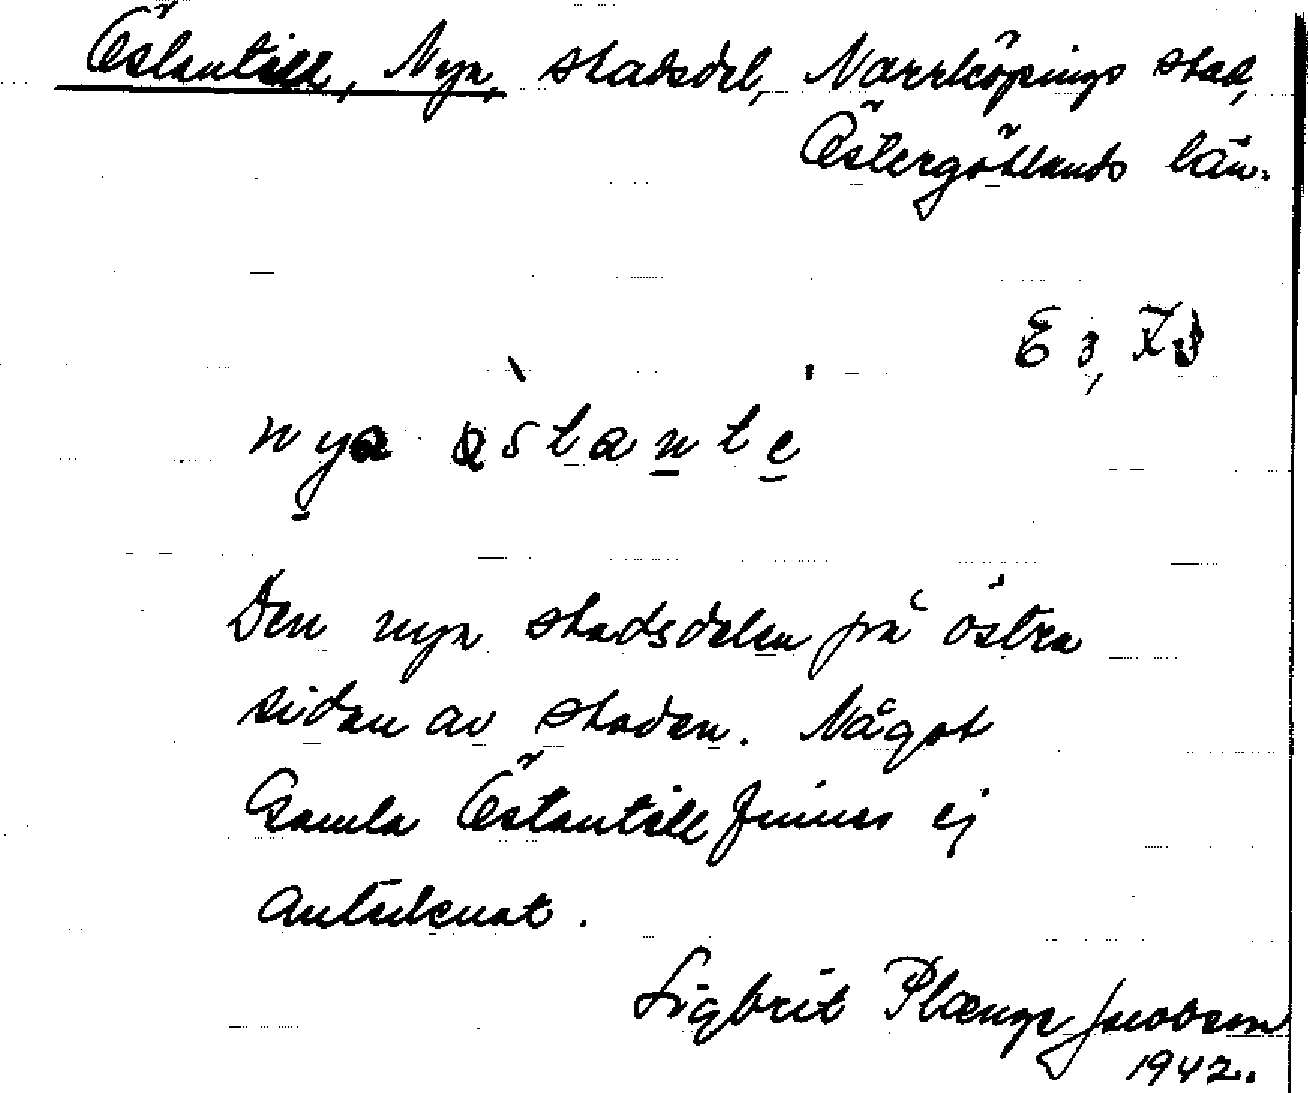 Östantill, Nya, stadsdel, Norrköpings stad,
Östergötlands län.
nya östante
Den nya stadsdelen på östra
sidan av staden. Något
Gamla Östantill finnes ej
antecknat.
Sigbrit Plænge Jacobson
1942.